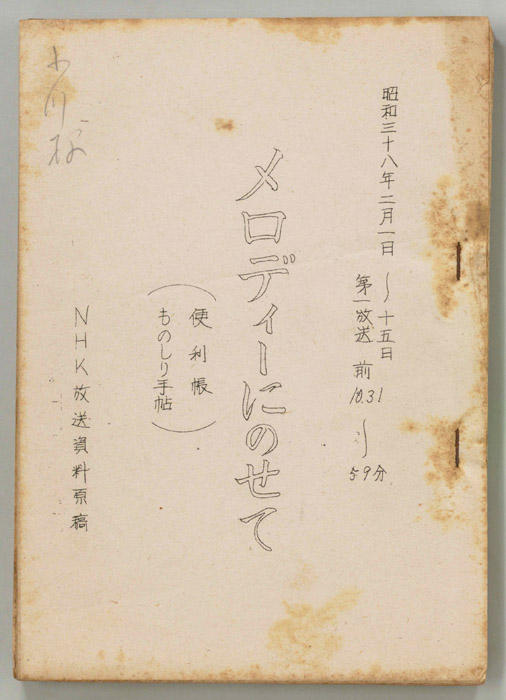 昭和三十八年二月一日〜十五日
第一放送 前10.31〜59分
メロディーにのせて
(便利帳
ものしり手帖)
NHK放送資料原稿
小川様